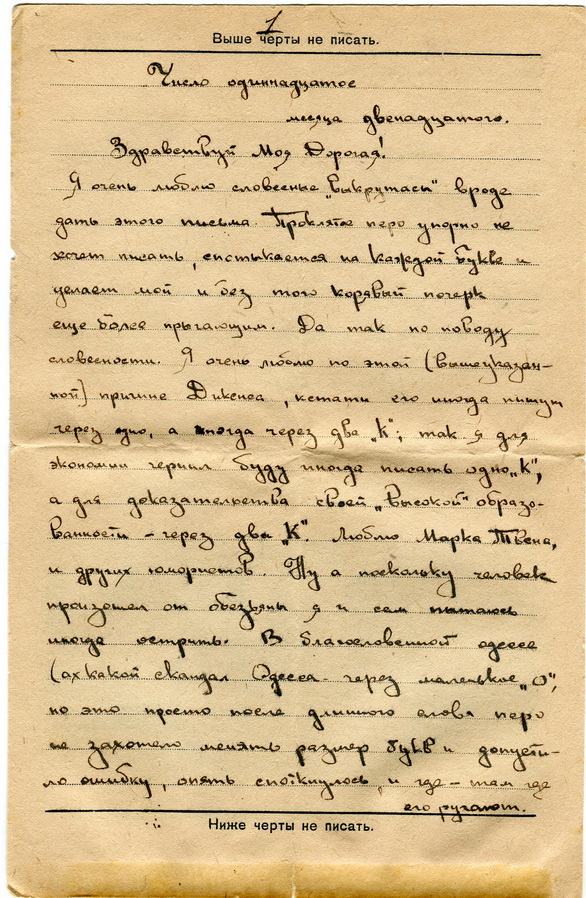 1
Выше черты не писать.
Число одиннадцатое
месяца двенадцатого.
Здравствуй Моя Дорогая!
Я очень люблю словесные „выкрутасы" вроде
даты этого письма. Проклятое перо упорно не
хочет писать, спотыкается на каждой букве и
делает мой и без того корявый почерк
еще более прыгающим. Да так по поводу
словесности. Я очень люблю по этой (вышеуказан-
ной) причине Дикенса, кстати его иногда пишут
через одно, а иногда через два „К"; так я для
экономии чернил буду иногда писать одно „К",
а для доказательства своей „высокой" образо-
ванности – через два „К". Люблю Марка Твена,
и других юмористов. Ну а поскольку человек
произошел от обезьяны я и сам пытаюсь
иногда острить. В благословенной одессе
(ах какой скандал Одесса – через маленькое „о",
но это просто после длинного слова перо
не захотело менять размер букв и допусти-
ло ошибку, опять споткнулось, и где – там где
его ругают.
Ниже черты не писать.